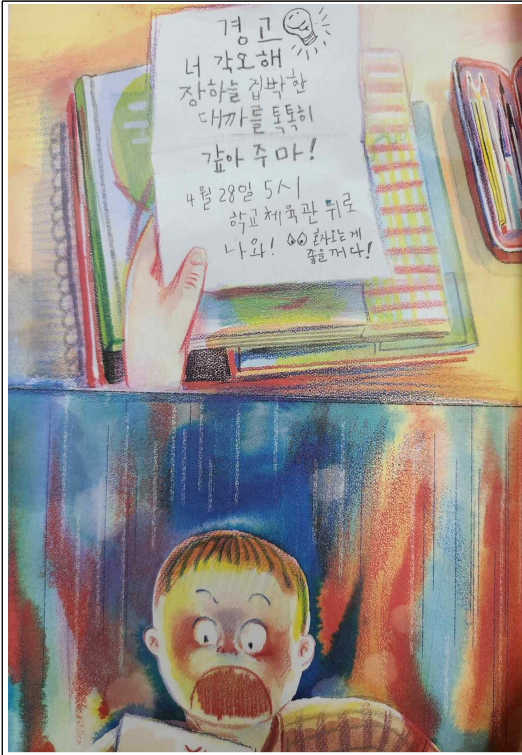 경고
너 각오해
장하늘 겁박한
대까를 톡톡히
갚아 주마!
4월 28일 5시
학교체육관 뒤로
나와! 혼자오는게
좋을꺼다!